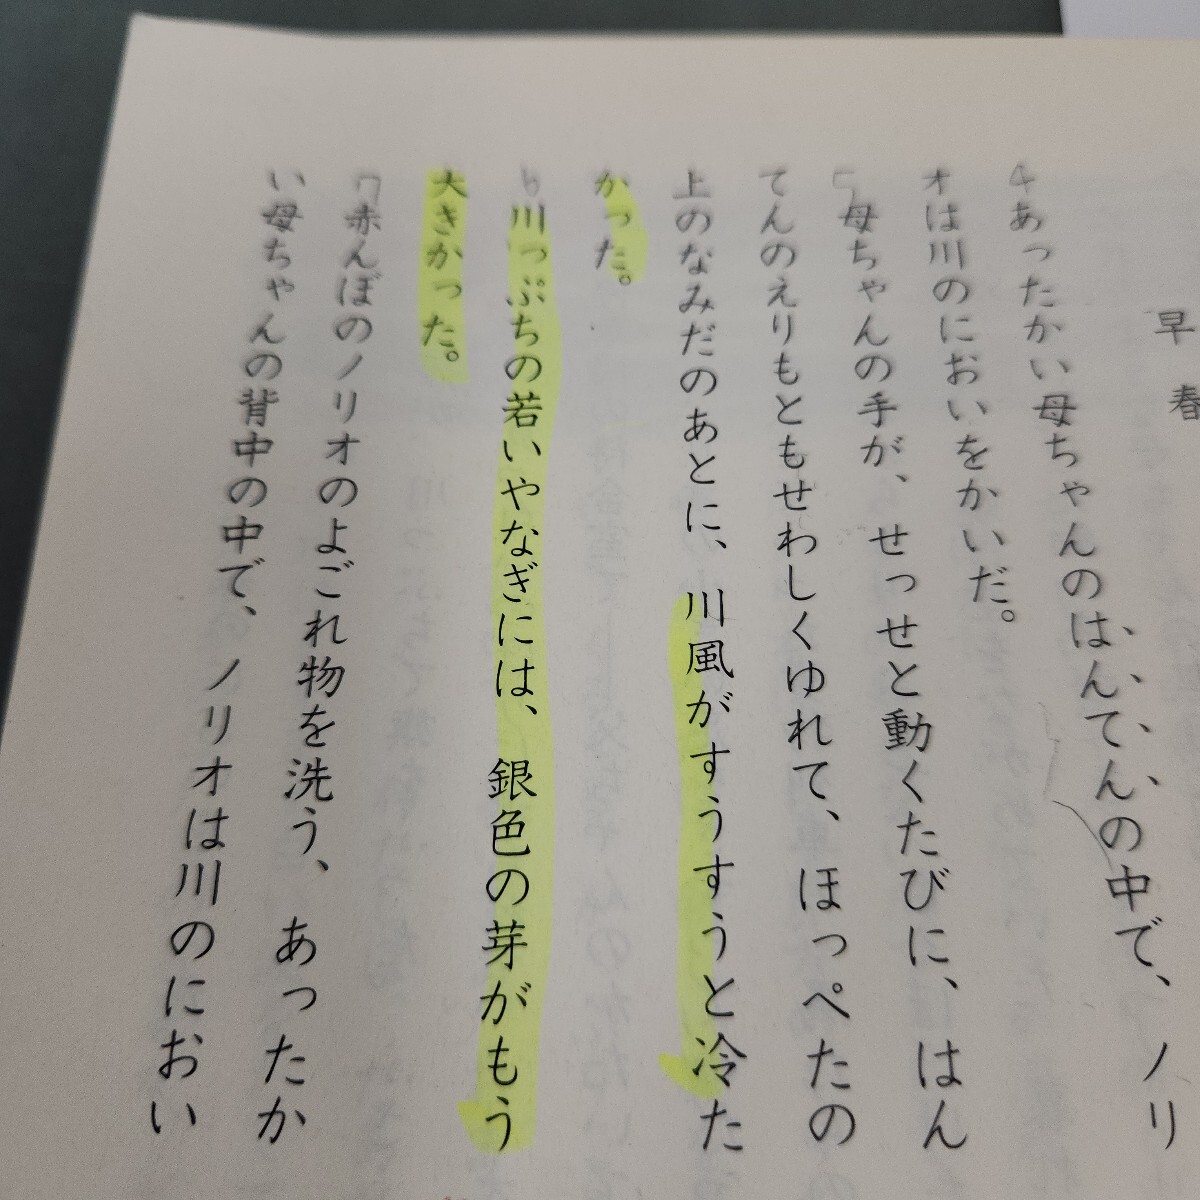 早春
4あったかい母ちゃんのはんてんの中で、ノリ
オは川のにおいをかいだ。
5母ちゃんの手が、せっせと動くたびに、はん
てんのえりもともせわしくゆれて、ほっぺたの
上のなみだのあとに、川風がすうすうと冷た
かった。
6川っぷちの若いやなぎには、銀色の芽がもう
大きかった。
7赤んぼのノリオのよごれ物を洗う、あったか
い母ちゃんの背中の中で、ノリオは川のにおい